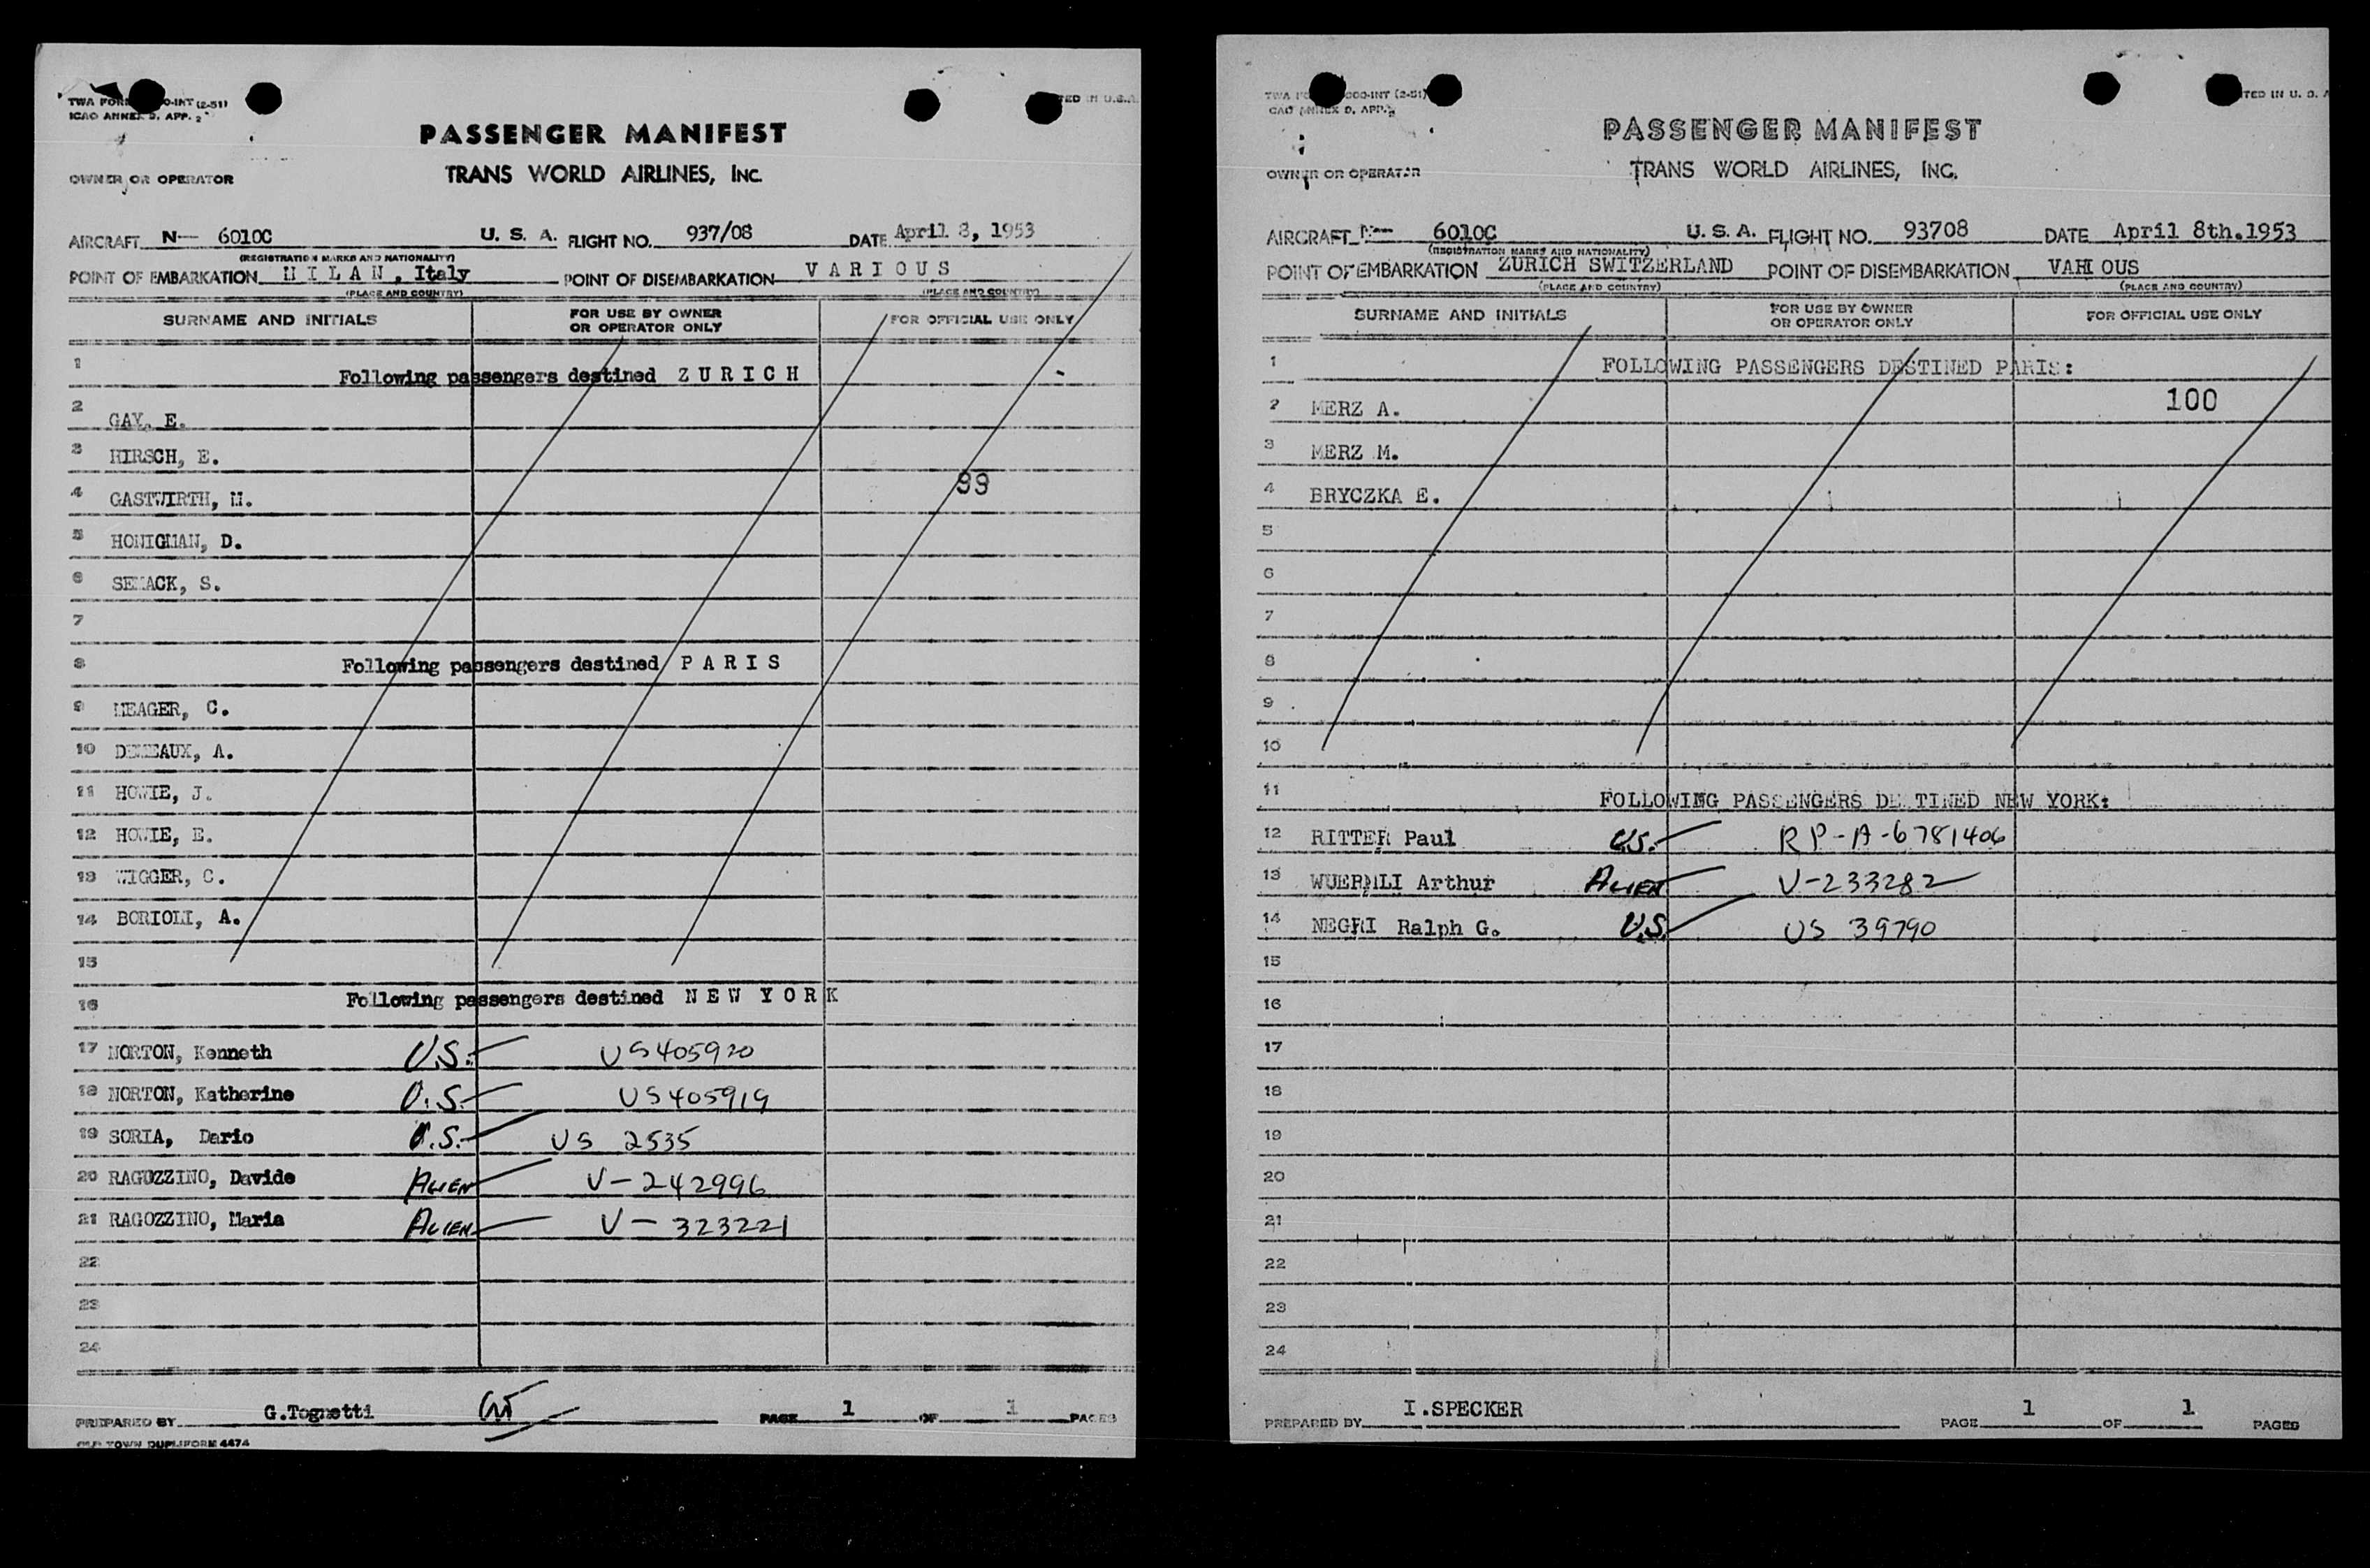 TWA FORM O-INT (2-51)
ICAO ANNEX D. APP. 2
TED IN U.S.A.
PASSENGER MANIFEST
TRANS WORLD AIRLINES, INC.
OWNER OR OPERATOR
AIRCRAFT N— 6010C U. S. A. FLIGHT NO. 937/08 DATE April 8, 1953
(REGISTRATION MARKS AND NATIONALITY)
POINT OF EMBARKATION M I L A N , Italy POINT OF DISEMBARKATION V A R I O U S
(PLACE AND COUNTRY) (PLACE AND COUNTRY)
SURNAME AND INITIALS FOR USE BY OWNER OR OPERATOR ONLY FOR OFFICIAL USE ONLY
1 Following passengers destined Z U R I C H
2 GAY, E.
3 HIRSCH, E.
4 GASTWIRTH, M. 99
5 HONIGMAN, D.
6 SEMACK, S.
7
8 Following passengers destined P A R I S
9 MEAGER, C.
10 DEMEAUX, A.
11 HOWIE, J.
12 HOWIE, E.
13 WIGGER, C.
14 BORIOLI, A.
15
16 Following passengers destined N E W Y O R K
17 NORTON, Kenneth U.S. US405920
18 NORTON, Katherine U.S. US405919
19 SORIA, Dario U.S. US 2535
20 RAGOZZINO, Davide ALIEN V-242996
21 RAGOZZINO, Maria ALIEN V-323221
22
23
24
PREPARED BY G.Tognetti PAGE 1 OF 1 PAGES
OLD TOWN DUPLIFORM 4474
TWA FO 000-INT (2-51)
ICAO ANNEX D. APP. 2
TED IN U. S. A
PASSENGER MANIFEST
TRANS WORLD AIRLINES, INC.
OWNER OR OPERATOR
AIRCRAFT N— 6010C U. S. A. FLIGHT NO. 93708 DATE April 8th.1953
(REGISTRATION MARKS AND NATIONALITY)
POINT OF EMBARKATION ZURICH SWITZERLAND POINT OF DISEMBARKATION VARIOUS
(PLACE AND COUNTRY) (PLACE AND COUNTRY)
SURNAME AND INITIALS FOR USE BY OWNER OR OPERATOR ONLY FOR OFFICIAL USE ONLY
1 FOLLOWING PASSENGERS DESTINED PARIS:
2 MERZ A. 100
3 MERZ M.
4 BRYCZKA E.
5
6
7
8
9
10
11 FOLLOWING PASSENGERS DESTINED NEW YORK:
12 RITTER Paul U.S. RP-A-6781406
13 WUERMLI Arthur ALIEN V-233282
14 NEGRI Ralph G. U.S. US 39790
15
16
17
18
19
20
21
22
23
24
PREPARED BY I.SPECKER PAGE 1 OF 1 PAGES